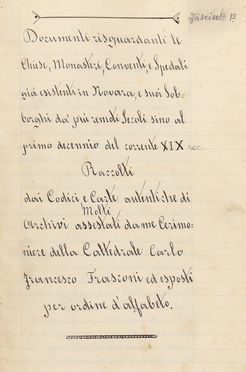 Fascicolo 1º
Documenti risguardanti le
Chiese, Monasteri, Conventi, e Spedali
già esistenti in Novara, e suoi Sob-
borghi da' più remoti Secoli sino al
primo decennio del corrente XIX sec.
Raccolti
dai Codici e Carte autentiche di
Molti
Archivi assestati da me Cerimo-
niere della Cattedrale Carlo
Francesco Frasconi ed esposti
per ordine d'alfabeto.